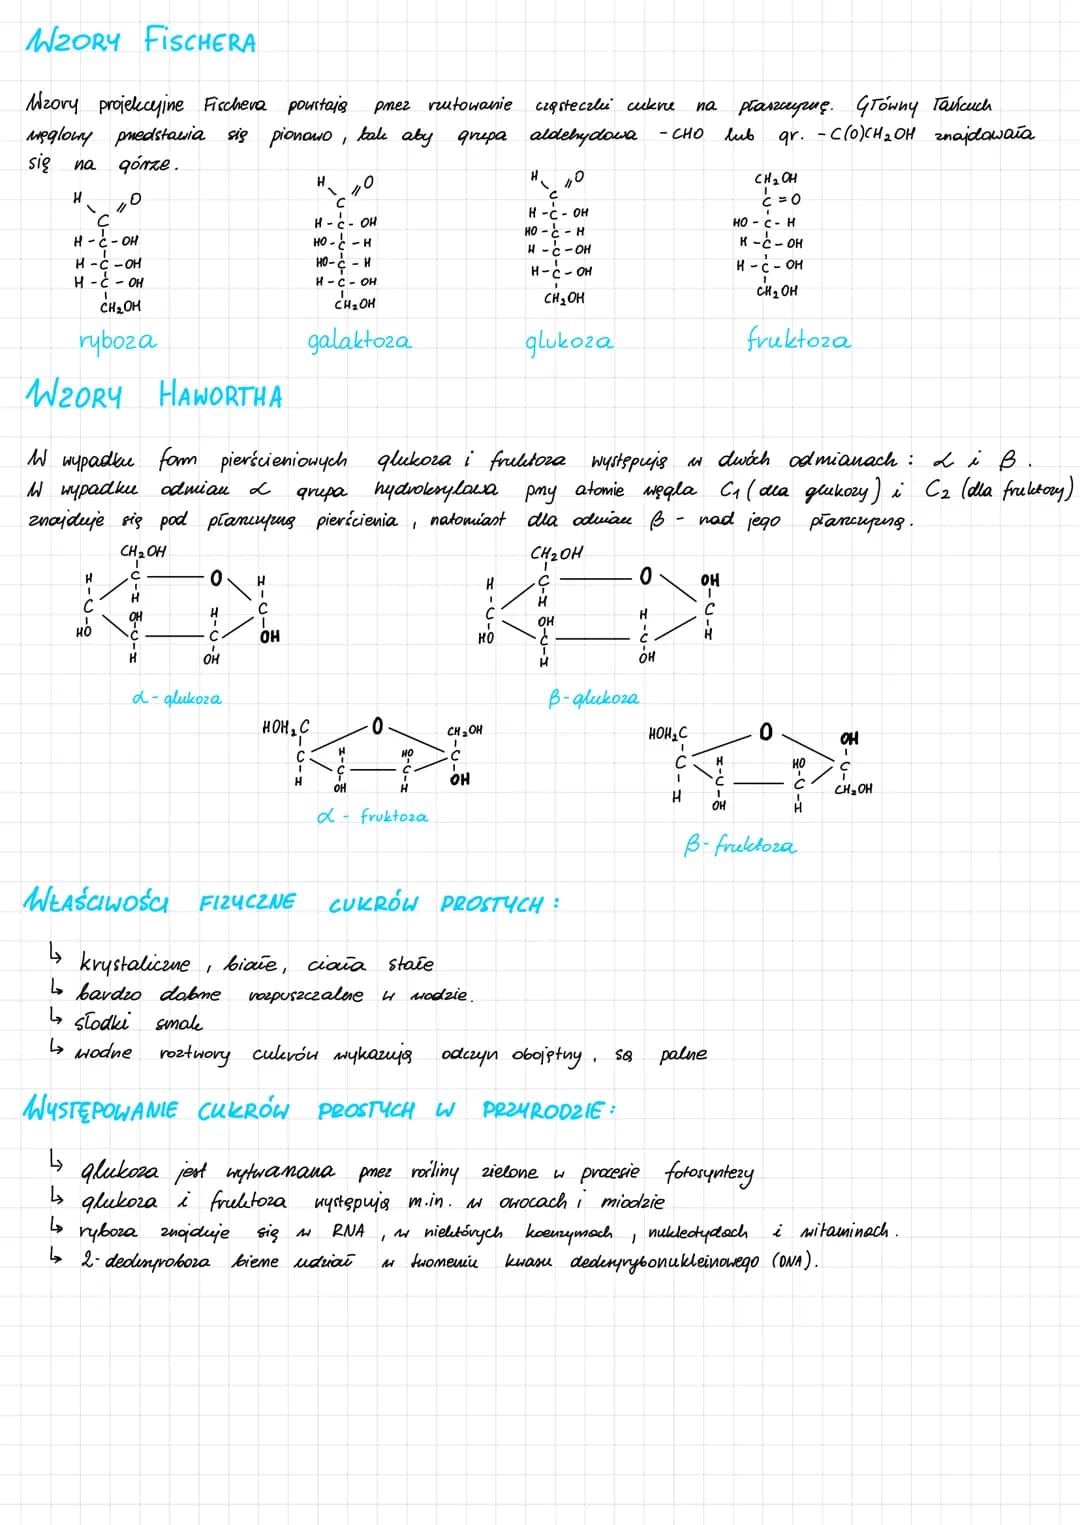 WZORY FISCHERA
Wzory projekcyjne Fischera powstają przez rzutowanie cząsteczki cukru na płaszczyznę. Główny łańcuch
węglowy przedstawia się pionowo, tak aby grupa aldehydowa -CHO lub gr. -C(O)CH₂OH znajdowała
się na górze.
H O H O H O CH₂OH
C C C C=O
H-C-OH H-C-OH H-C-OH HO-C-H
H-C-OH HO-C-H HO-C-H H-C-OH
H-C-OH HO-C-H H-C-OH H-C-OH
CH₂OH H-C-OH H-C-OH CH₂OH
CH₂OH CH₂OH
ryboza galaktoza glukoza fruktoza
WZORY HAWORTHA
W wypadku form pierścieniowych glukoza i fruktoza występują w dwóch odmianach: α i β.
W wypadku odmian α grupa hydroksylowa przy atomie węgla C₁ (dla glukozy) i C₂ (dla fruktozy)
znajduje się pod płaszczyzną pierścienia, natomiast dla odmian β - nad jego płaszczyzną.
CH₂OH CH₂OH
H C O H H C O OH
C H C C H C
HO OH H OH HO OH H H
C C C C
H OH H OH
α-glukoza β-glukoza
HOH₂C O CH₂OH HOH₂C O OH
C H HO C C H HO C
H C C OH H C C CH₂OH
OH H OH H
α - fruktoza
β-fruktoza
WŁAŚCIWOŚCI FIZYCZNE CUKRÓW PROSTYCH:
↳ krystaliczne, białe, ciała stałe
↳ bardzo dobrze rozpuszczalne w wodzie.
↳ słodki smak
↳ wodne roztwory cukrów wykazują odczyn obojętny, są palne
WYSTĘPOWANIE CUKRÓW PROSTYCH W PRZYRODZIE:
↳ glukoza jest wytwarzana przez rośliny zielone w procesie fotosyntezy
↳ glukoza i fruktoza występują m.in. w owocach i miodzie
↳ ryboza znajduje się w RNA, w niektórych koenzymach, nukleotydach i witaminach.
↳ 2-deoksyroboza bierze udział w tworzeniu kwasu deoksyrybonukleinowego (DNA).